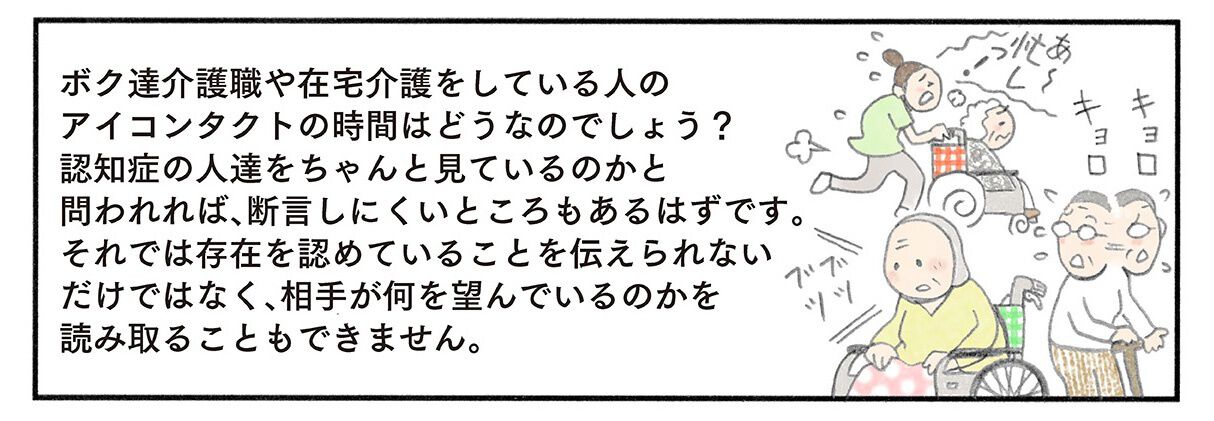 ボク達介護職や在宅介護をしている人の
アイコンタクトの時間はどうなのでしょう？
認知症の人達をちゃんと見ているのかと
問われれば、断言しにくいところもあるはずです。
それでは存在を認めていることを伝えられない
だけではなく、相手が何を望んでいるのかを
読み取ることもできません。
あ～
忙し
っ！
キョロ
キョロ
ブツ
ブツ